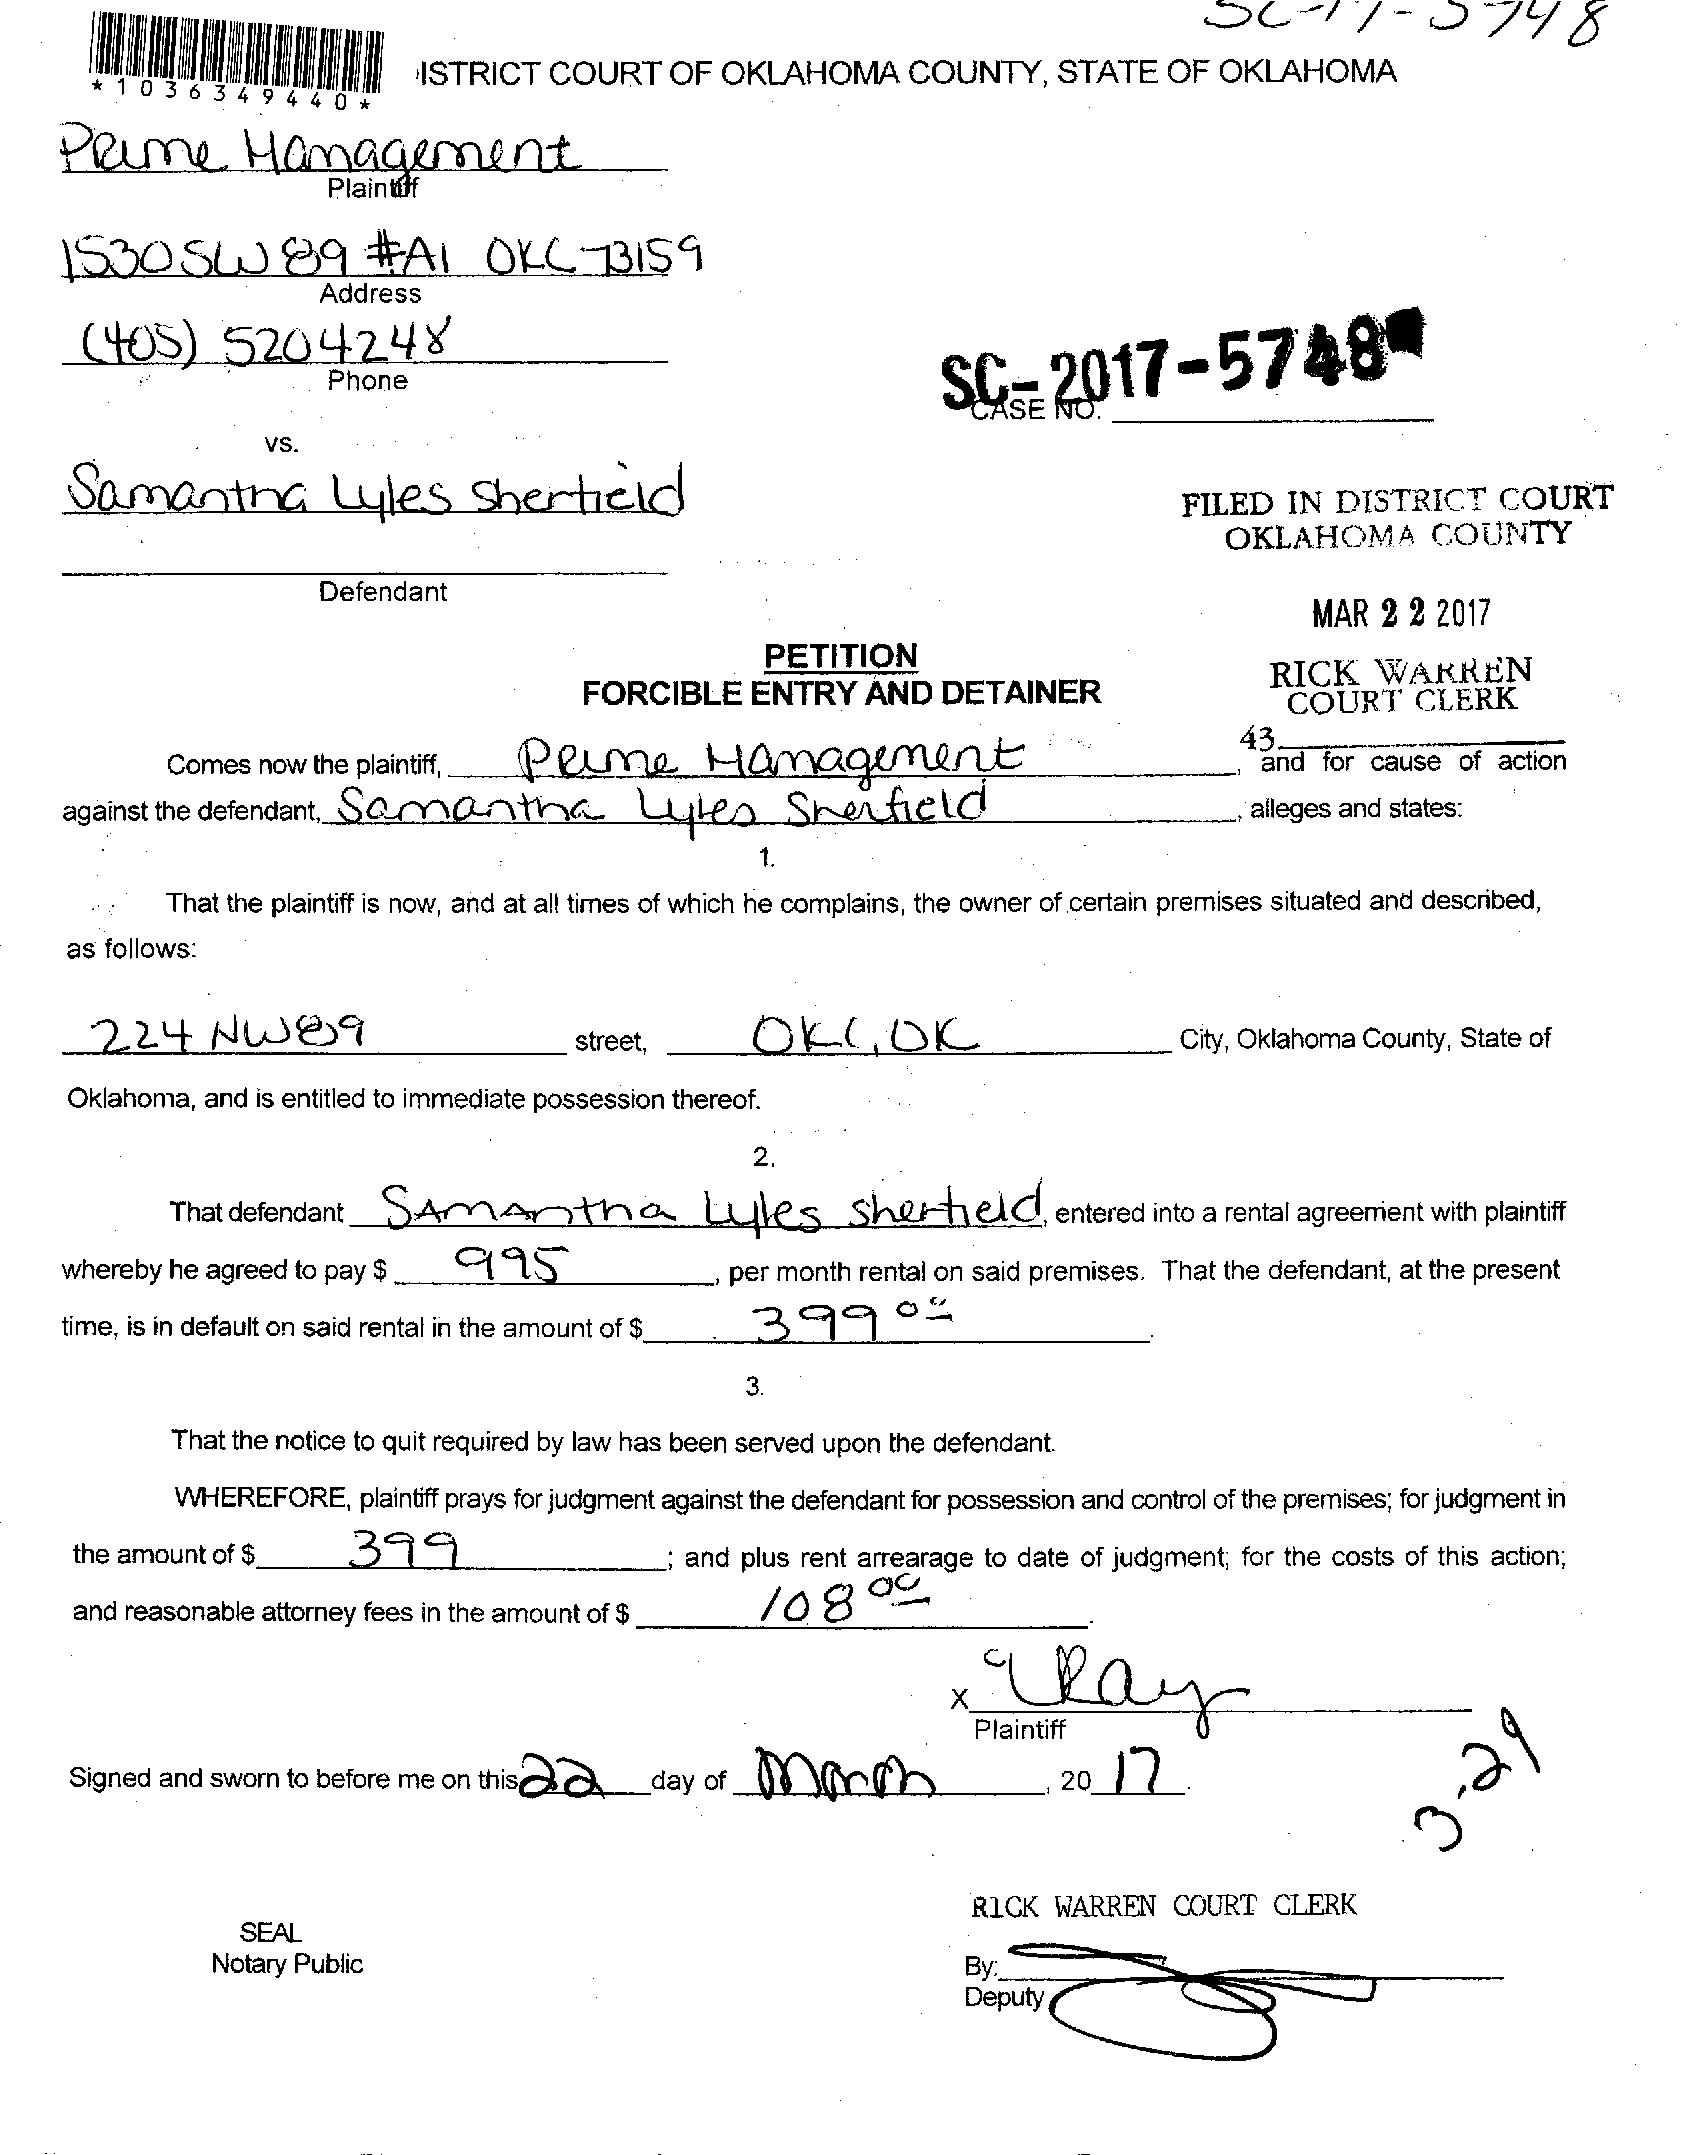 SC-17-5748
*1036349440*
ISTRICT COURT OF OKLAHOMA COUNTY, STATE OF OKLAHOMA
Prime Management
Plaintiff
1530 SW 89 #A1 OKC 73159
Address
(405) 5204248
Phone
SC-2017-5748
CASE NO.
vs.
Samantha Lyles Sherfield
FILED IN DISTRICT COURT
OKLAHOMA COUNTY
Defendant
MAR 22 2017
PETITION
FORCIBLE ENTRY AND DETAINER
RICK WARREN
COURT CLERK
43
Comes now the plaintiff, Prime Management, and for cause of action
against the defendant, Samantha Lyles Sherfield, alleges and states:
1.
That the plaintiff is now, and at all times of which he complains, the owner of certain premises situated and described,
as follows:
224 NW 89 street, OKC, OK City, Oklahoma County, State of
Oklahoma, and is entitled to immediate possession thereof.
2.
That defendant Samantha Lyles Sherfield, entered into a rental agreement with plaintiff
whereby he agreed to pay $ 995, per month rental on said premises. That the defendant, at the present
time, is in default on said rental in the amount of $ 399 00.
3.
That the notice to quit required by law has been served upon the defendant.
WHEREFORE, plaintiff prays for judgment against the defendant for possession and control of the premises; for judgment in
the amount of $ 399; and plus rent arrearage to date of judgment; for the costs of this action;
and reasonable attorney fees in the amount of $ 108 00.
x Ray
Plaintiff
Signed and sworn to before me on this 22 day of March, 2017.
3.29
RICK WARREN COURT CLERK
SEAL
Notary Public
By:
Deputy